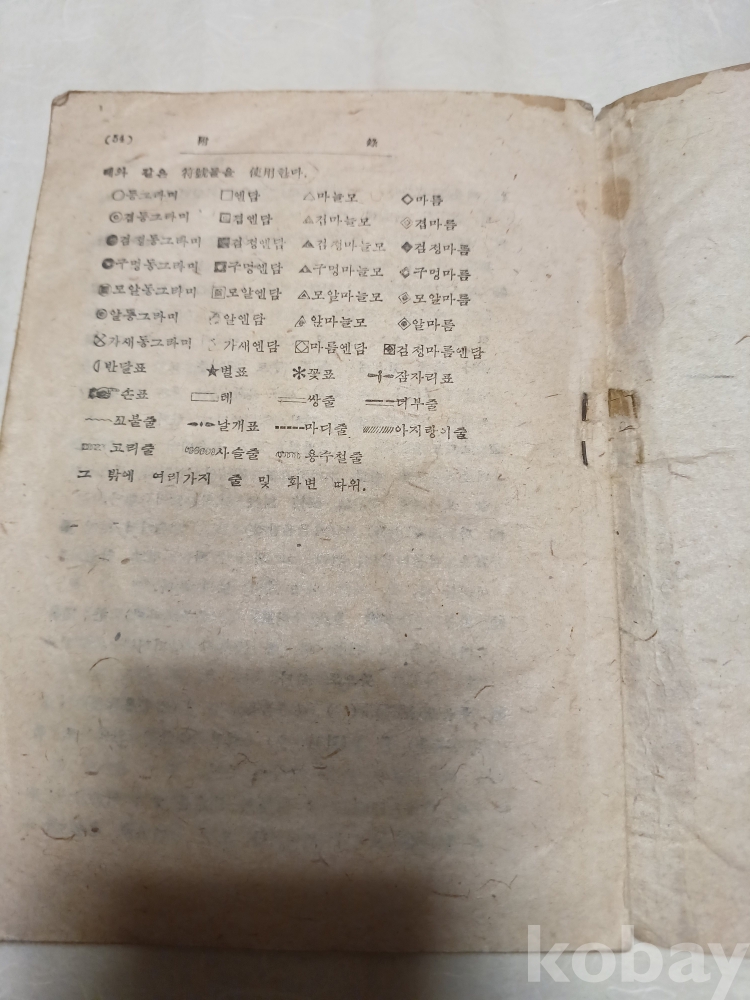 (54) 附 錄
같은 符號들을 使用한다.
○동그라미 □엔담 △마늘모 ◇마름
◎겹동그라미 겹엔담 겹마늘모 겹마름
검정동그라미 검정엔담 검정마늘모 ◆검정마름
구멍동그라미 구멍엔담 구멍마늘모 구멍마름
모알동그라미 모알엔담 모알마늘모 모알마름
알동그라미 알엔담 알마늘모 ◈알마름
가새동그라미 가새엔담 마름엔담 검정마름엔담
반달표 ★별표 꽃표 잠자리표
손표 테 쌍줄 더부줄
꼬불줄 날개표 마디줄 아지랑이줄
고리줄 사슬줄 용수철줄
그 밖에 여러가지 줄 및 화변 따위.
kobay